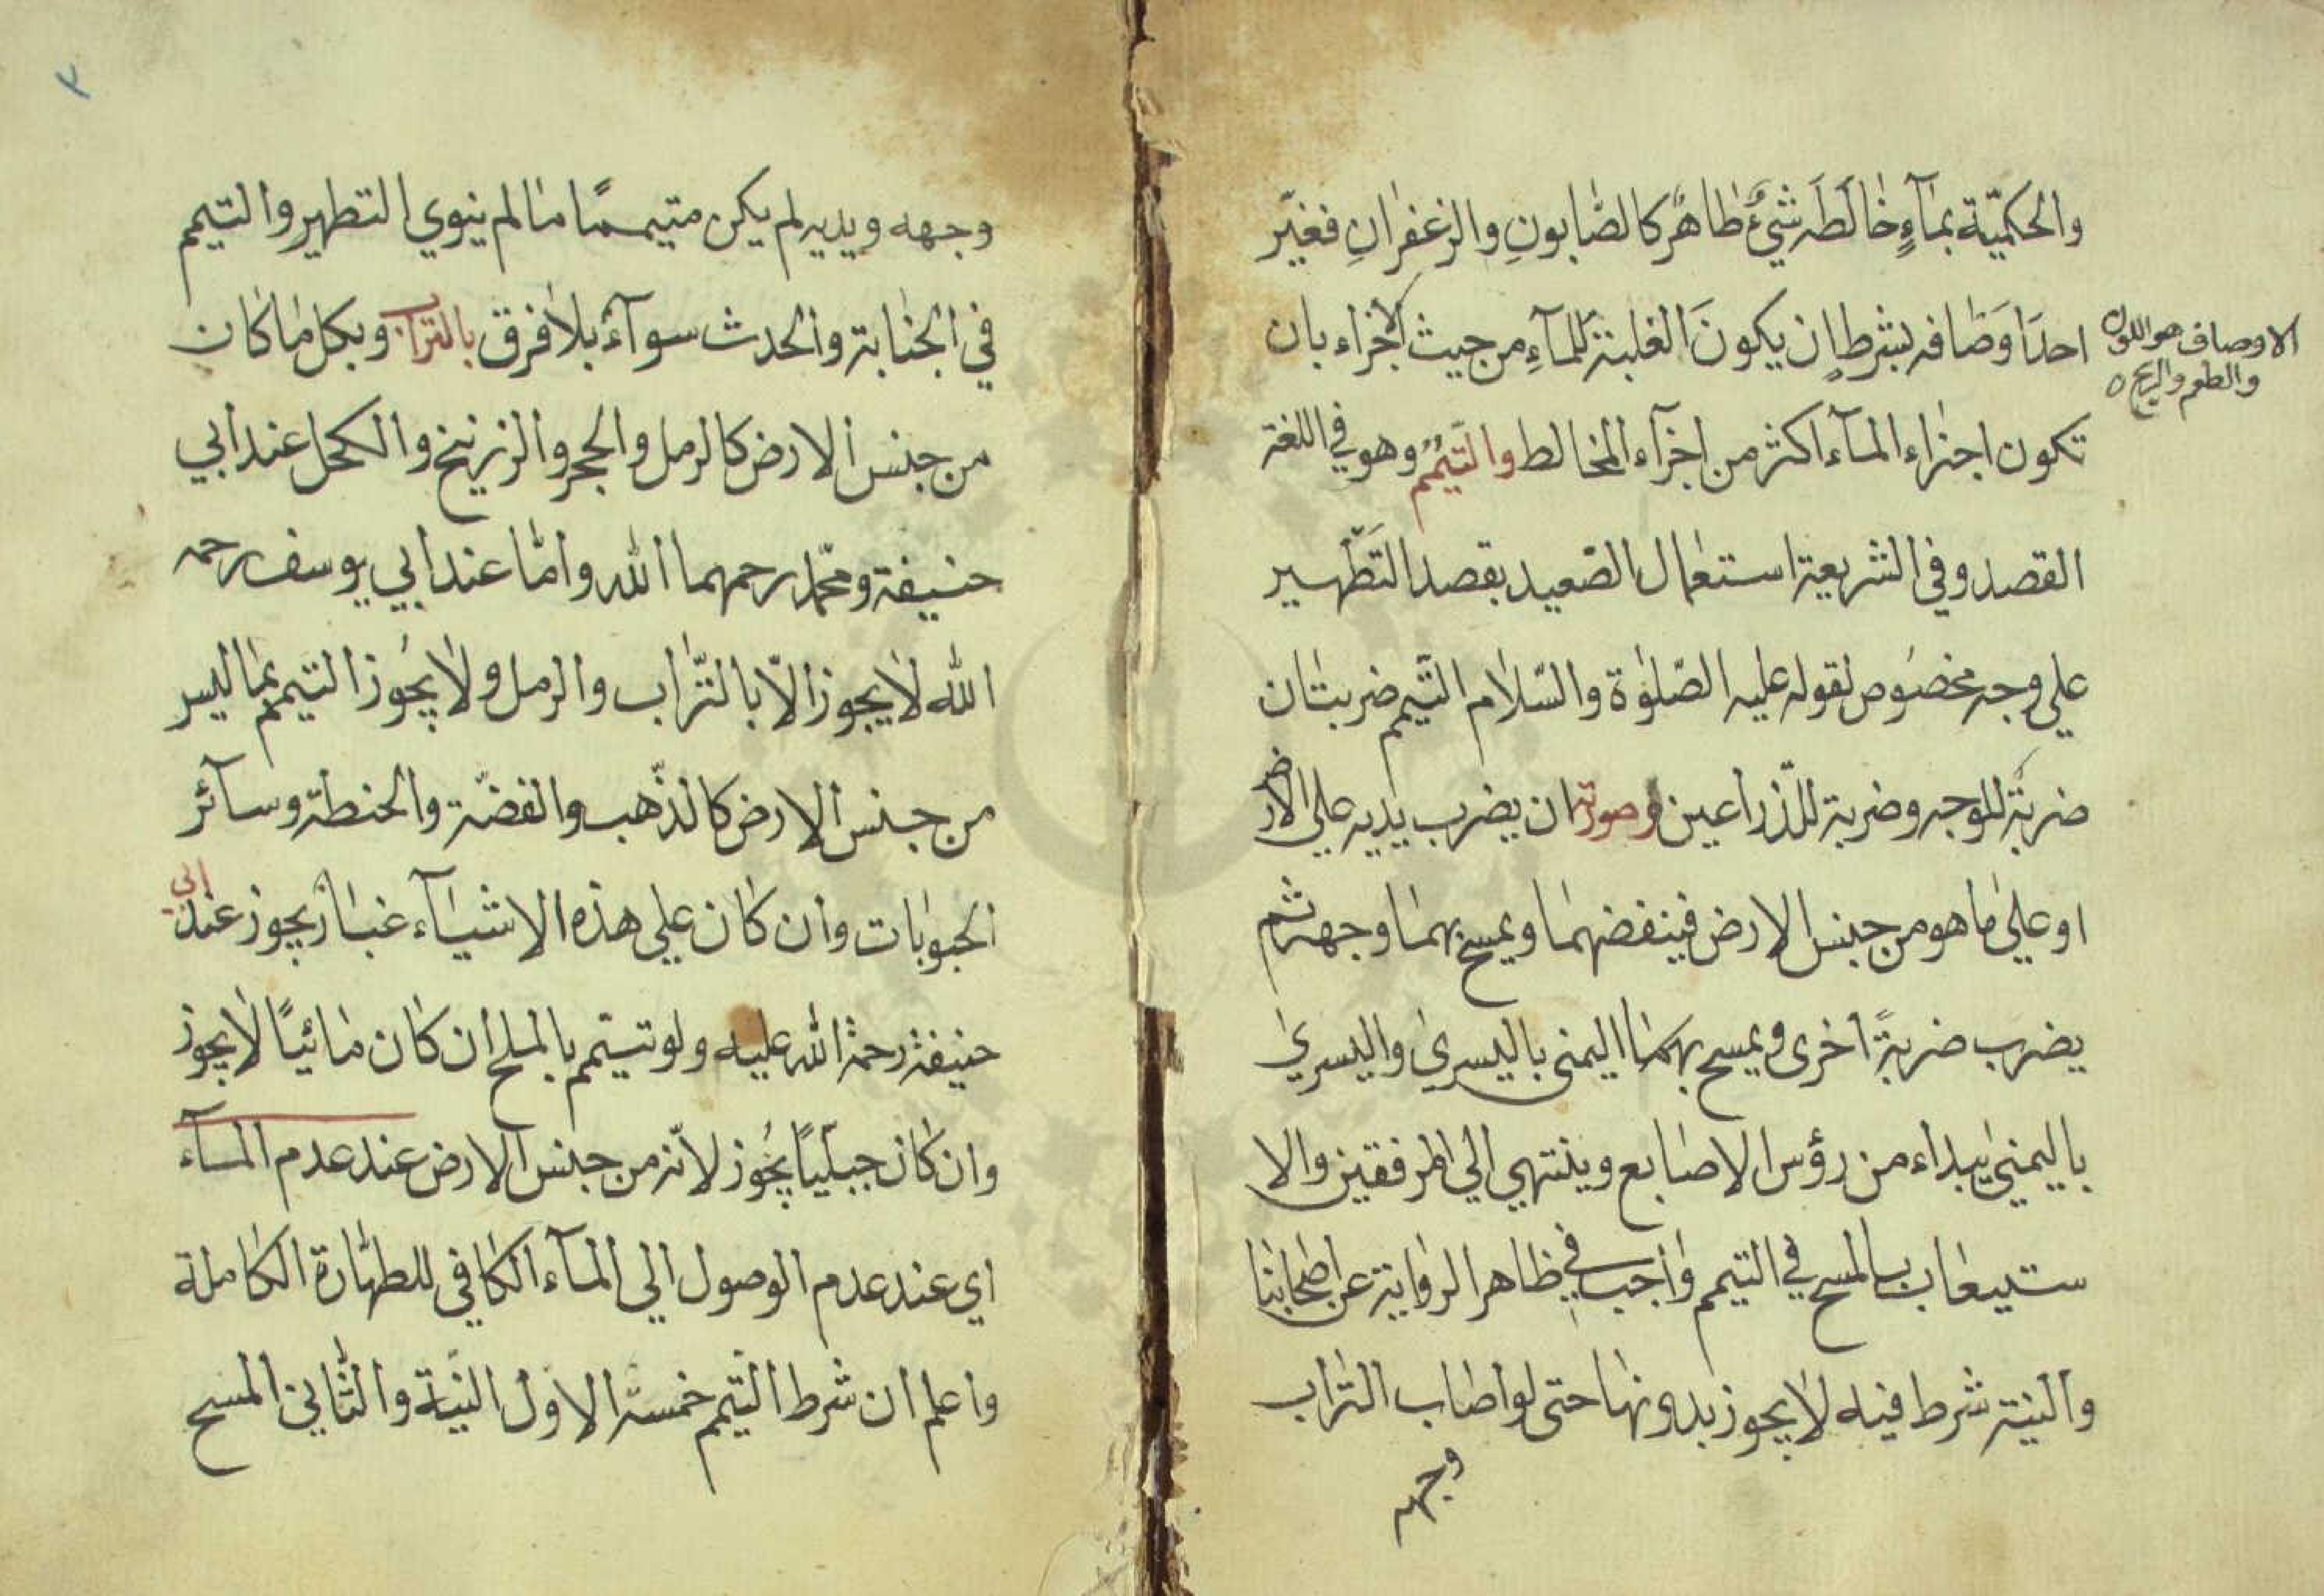 والحكميّة بمآءٍ خالَطَه شيءٌ طاهرٌ كالصّابونِ والزعفرانِ فغيّر
احدَ اَوصَافه بشرط ان يكونَ الغلبة للمآءِ من حيث الاجزاء بان
الاوصاف هو اللون
والطعم والريح ه
تكون اجزاء المآء اكثر من اجزآء المخالط والتّيمّمُ وهو في اللغة
القصد وفي الشريعة استعمال الصّعيد بقصد التَطّهير
علي وجه مخصُوص لقوله عليه الصّلوٰة والسّلام التّيمم ضربتان
ضربةٌ للوجه وضربة للذّراعين وصورته ان يضرب يديه علي الارض
او علىٰ ما هو من جنس الارض فينفضهما ويمسح بهما وجهه ثم
يضرب ضربةً اخرى ويمسح بهما اليمنى باليسرىٰ واليسرىٰ
باليمنىٰ يبداء من رؤس الاصابع وينتهي الي المرفقين والا
ستيعاب بالمسح في التيمم واجب في ظاهر الرواية عن اصحابنا
والنية شرط فيه لا يجوز بدونها حتى لو اصاب التراب
وجهه
٢
وجهه ويديه لم يكن متيممًا ما لم ينوي التطهير والتيمم
في الجنابة والحدث سوآءٌ بلا فرق بالتراب وبكل ما كان
من جنس الارض كالرمل والحجر والزرنيخ والكحل عند ابي
حنيفة ومحمّد رحمهما الله وامّا عند ابي يوسف رحمه
الله لا يجوز الّا بالتّراب والرمل ولا يجُوز التيمم بما ليس
من جنس الارض كالذّهب والفضّة والحنطة وسآئر
الحبوبات وان كان علي هذه الاشيآء غبار يجوز عند ابي
حنيفة رحمة الله عليه ولو تيمّم بالملح ان كان مائيًا لا يجوز
وان كان جبليًّا يجُوز لانّه من جنس الارض عند عدم المآء
اي عند عدم الوصول الي المآء الكافي للطهارة الكاملة
واعلم ان شرط التّيمم خمسة الاول النيّة والثّاني المسح